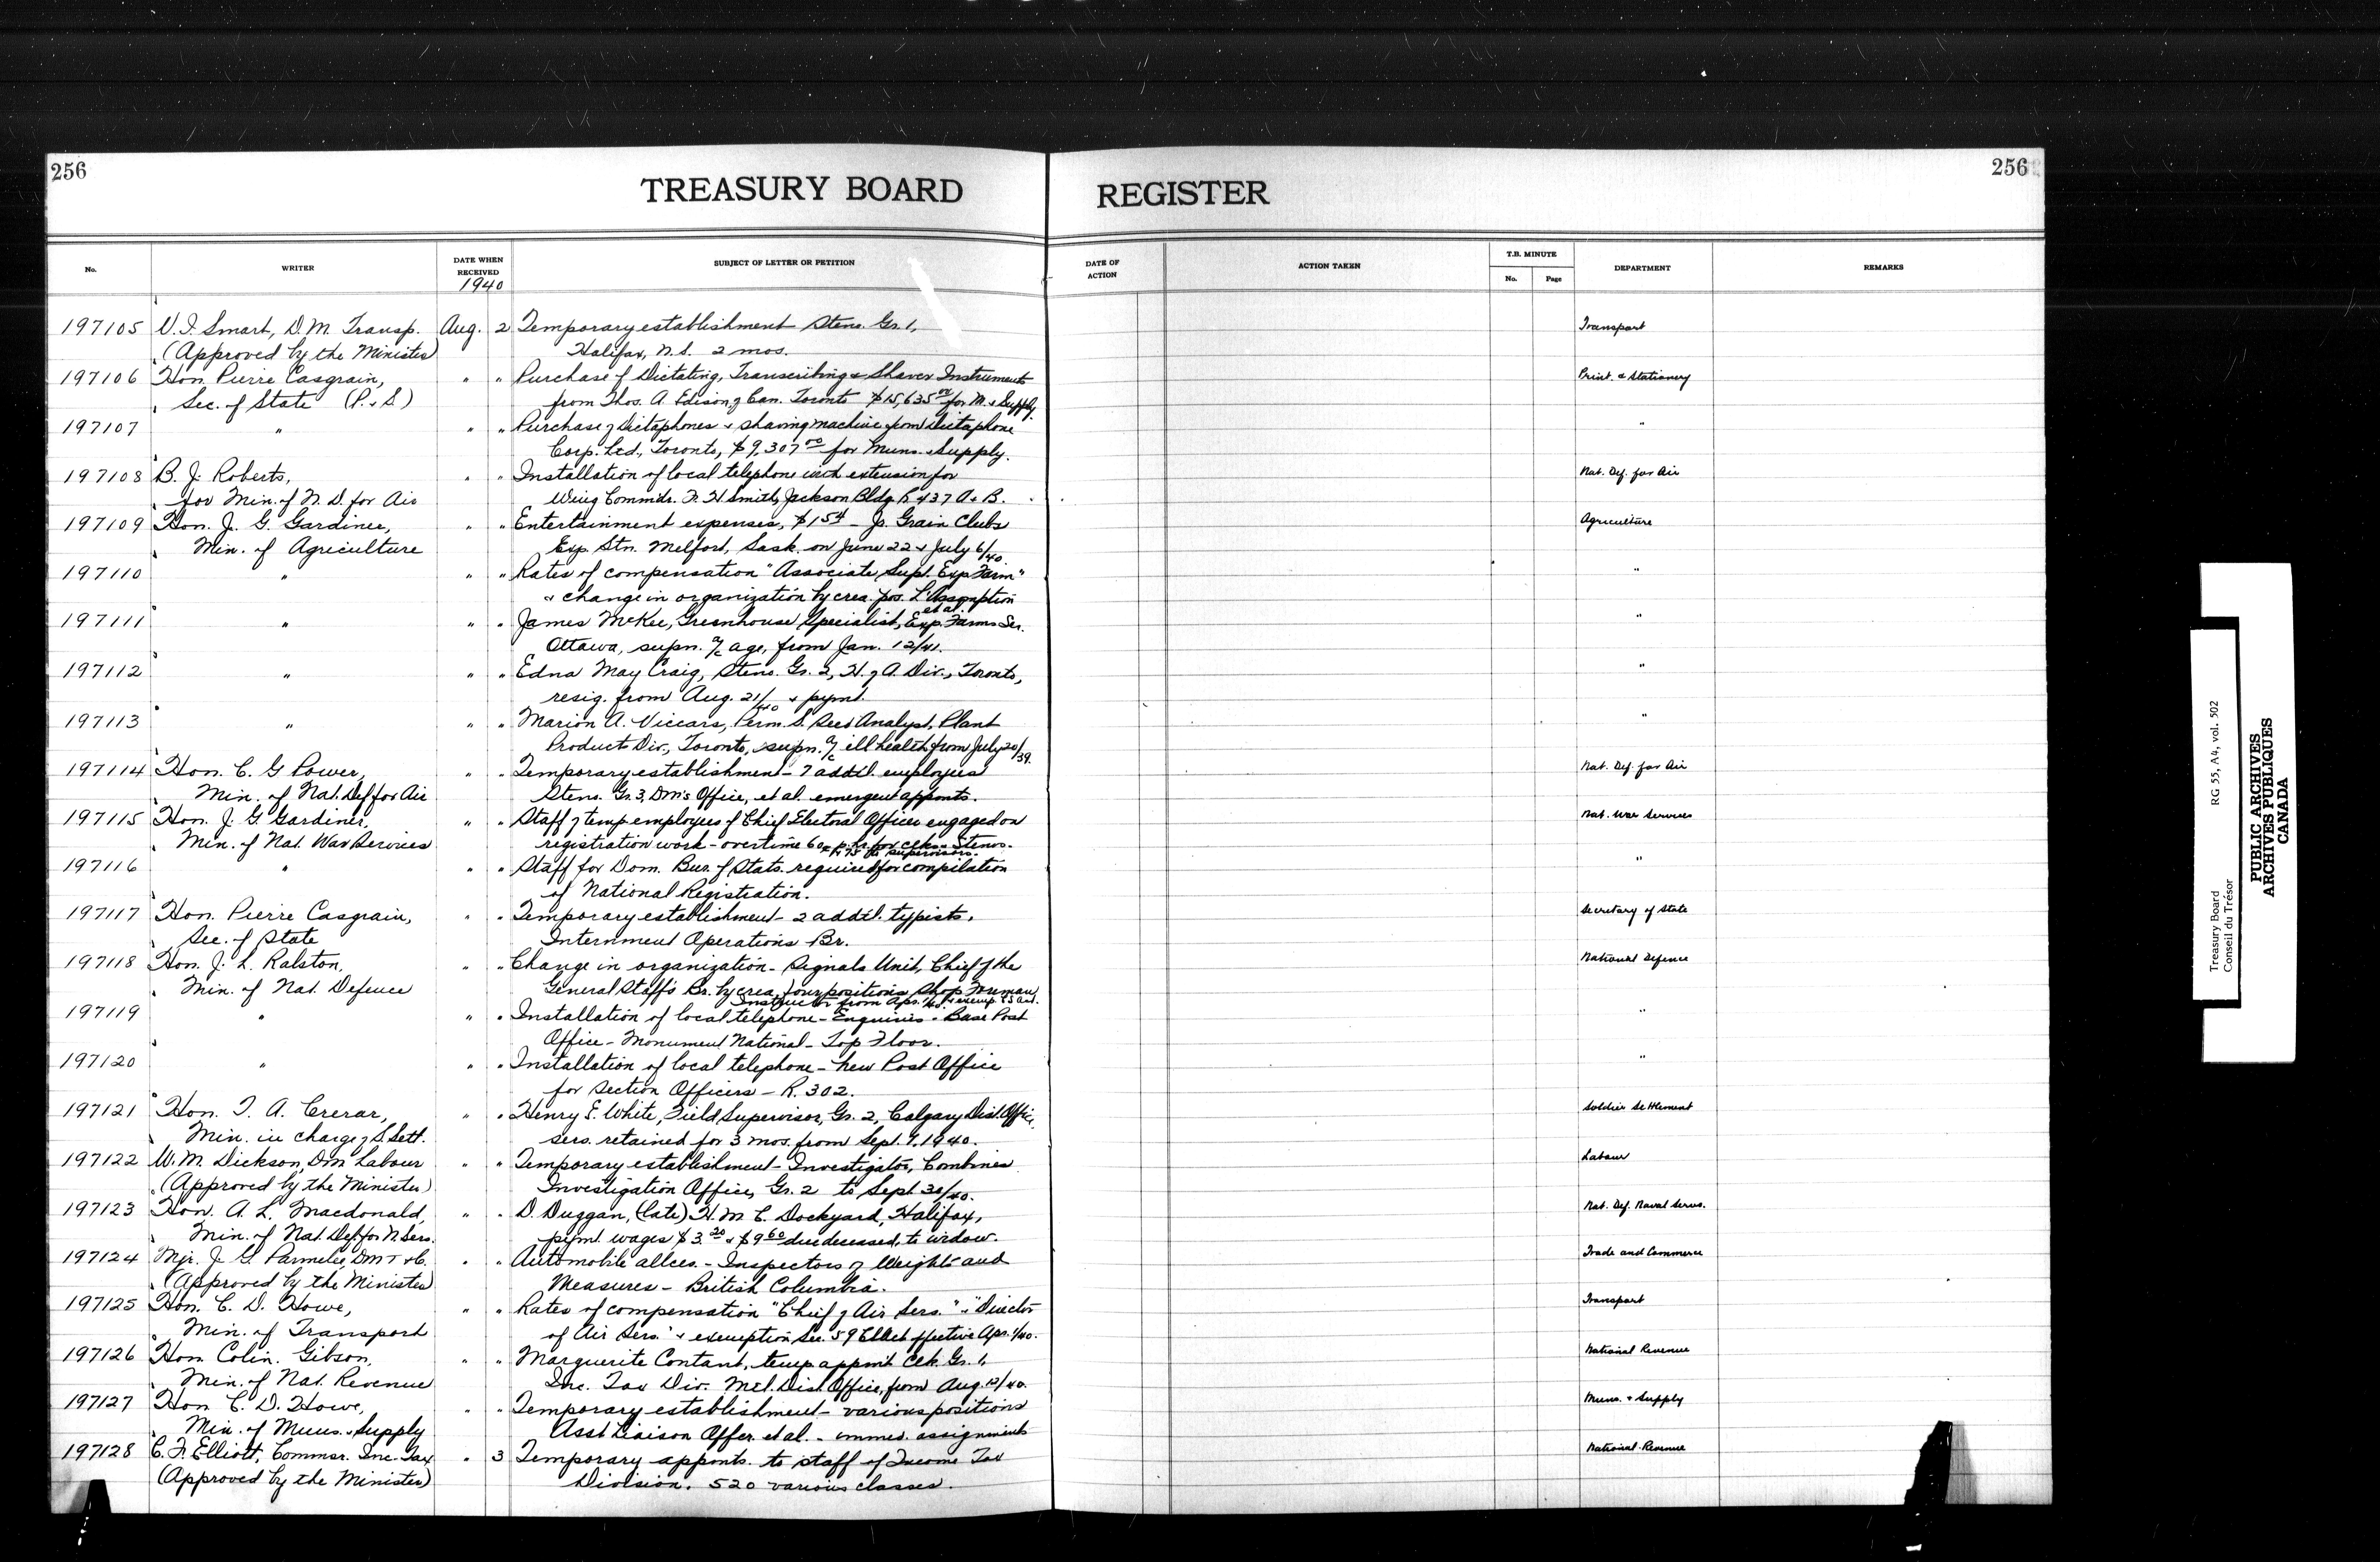 256
256
TREASURY BOARD REGISTER
No. WRITER DATE WHEN RECEIVED 1940 SUBJECT OF LETTER OR PETITION DATE OF ACTION ACTION TAKEN T.B. MINUTE No. Page DEPARTMENT REMARKS
197105 V. I. Smart, D.M. Transp. Aug. 2 Temporary establishment Steno. Gr. 1, Transport
(Approved by the Minister) Halifax, N.S. 2 mos.
197106 Hon. Pierre Casgrain, " " Purchase of Dictating, Transcribing & Shaver Instruments Print. & Stationery
Sec. of State (P. & S.) from Thos. A. Edison of Can. Toronto $15,635.00 for M. & Supply.
197107 " " " Purchase of Dictaphones & shaving machine from Dictaphone "
Corp. Ltd., Toronto, $9,307.00 for Muns. & Supply.
197108 B. J. Roberts, " " Installation of local telephone with extension for Nat. Def. for Air
for Min. of N. D. for Air Wing Commdr. F. H. Smith, Jackson Bldg. R 437 A & B.
197109 Hon. J. G. Gardiner, " " Entertainment expenses, – Jr. Grain Clubs Agriculture
Min. of Agriculture Exp. Stn. Melfort, Sask. on June 22 & July 6/40
197110 " " " Rates of compensation "Associate Supt. Exp Farm" "
& change in organization by crea. pos. L'Assomption
et al.
197111 " " " James McKee, Greenhouse Specialist, Exp. Farms Ser. "
Ottawa, supn. a/c age, from Jan. 12/41.
197112 " " " Edna May Craig, Steno. Gr. 2, H. of A. Div., Toronto, "
resig. from Aug. 21/40 & pymt.
197113 " " " Marion A. Viccars, Perm. S. Seed Analyst, Plant "
Products Div., Toronto, supn. a/c ill health from July 20/39.
197114 Hon. C. G Power, " " Temporary establishment – 7 addtl. employees Nat. Def. for Air
Min. of Nat. Def. for Air Steno. Gr. 3, DM's Office, et al. emergent appmts.
197115 Hon. J. G. Gardiner, " " Staff of temp employees of Chief Electoral Officer engaged on Nat. War Services
Min. of Nat. War Services registration work – overtime 60¢ p. hr. for clks & Stenos.
75 for supervisors.
197116 " " " Staff for Dom. Bur. of Stats. required for compilation "
of National Registration.
197117 Hon. Pierre Casgrain, " " Temporary establishment – 2 addtl. typists, Secretary of State
Sec. of State Internment Operations Br.
197118 Hon. J. L. Ralston, " " Change in organization – Signals Unit, Chief of the National Defence
Min. of Nat. Defence General Staff's Br. by crea. four positions Shop Foreman
Instructor from Apr. 1/40 & exemp.
197119 " " " Installation of local telephone – Enquiries – Base Post "
Office – Monument National – Top Floor.
197120 " " " Installation of local telephone – New Post Office "
for Section Officers – R. 302.
197121 Hon. T. A. Crerar, " " Henry E. White, Field Supervisor, Gr. 2, Calgary Dist. Office, Soldier Settlement
Min. in charge of S. Sett. sers. retained for 3 mos. from Sept. 7, 1940.
197122 W. M. Dickson, DM Labour " " Temporary establishment – Investigator, Combines Labour
(Approved by the Minister) Investigation Office, Gr. 2 to Sept 30/40.
197123 Hon. A. L. Macdonald, " " D. Duggan, (late) H. M. C. Dockyard, Halifax, Nat. Def. Naval Servs.
Min. of Nat. Def. for N. Sers. pymt. wages $3.20 & $9.60 due deceased, to widow.
197124 Mjr. J. G. Parmelee, DM T & C. " " Automobile allces. – Inspectors of Weights and Trade and Commerce
(Approved by the Minister) Measures – British Columbia.
197125 Hon. C. D. Howe, " " Rates of compensation "Chief of Air Sers." & "Director Transport
Min. of Transport of Air Sers." & exemption Sec. 59 effective Apr. 1/40.
197126 Hon. Colin. Gibson, " " Marguerite Contant, temp appmt. Clk. Gr. 1, National Revenue
Min. of Nat. Revenue Inc. Tax Div. Mtl. Dist. Office, from Aug. 12/40.
197127 Hon C. D. Howe, " " Temporary establishment – various positions Muns. & Supply
Min. of Muns. & Supply Asst Liaison Offer. et al. – immed. assignments
197128 C. F. Elliott, Commsr. Inc. Tax " 3 Temporary appmts. to staff of Income Tax National Revenue
(Approved by the Minister) Division. 520 various classes.
Treasury Board
Conseil du Trésor
RG 55, A4, vol. 502
PUBLIC ARCHIVES
ARCHIVES PUBLIQUES
CANADA